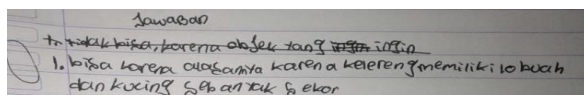 Jawaban
1. tidak bisa, karena objek yang ingin ingin
1. bisa karena alasannya karena kelereng memiliki 10 buah
dan kucing sebanyak 5 ekor